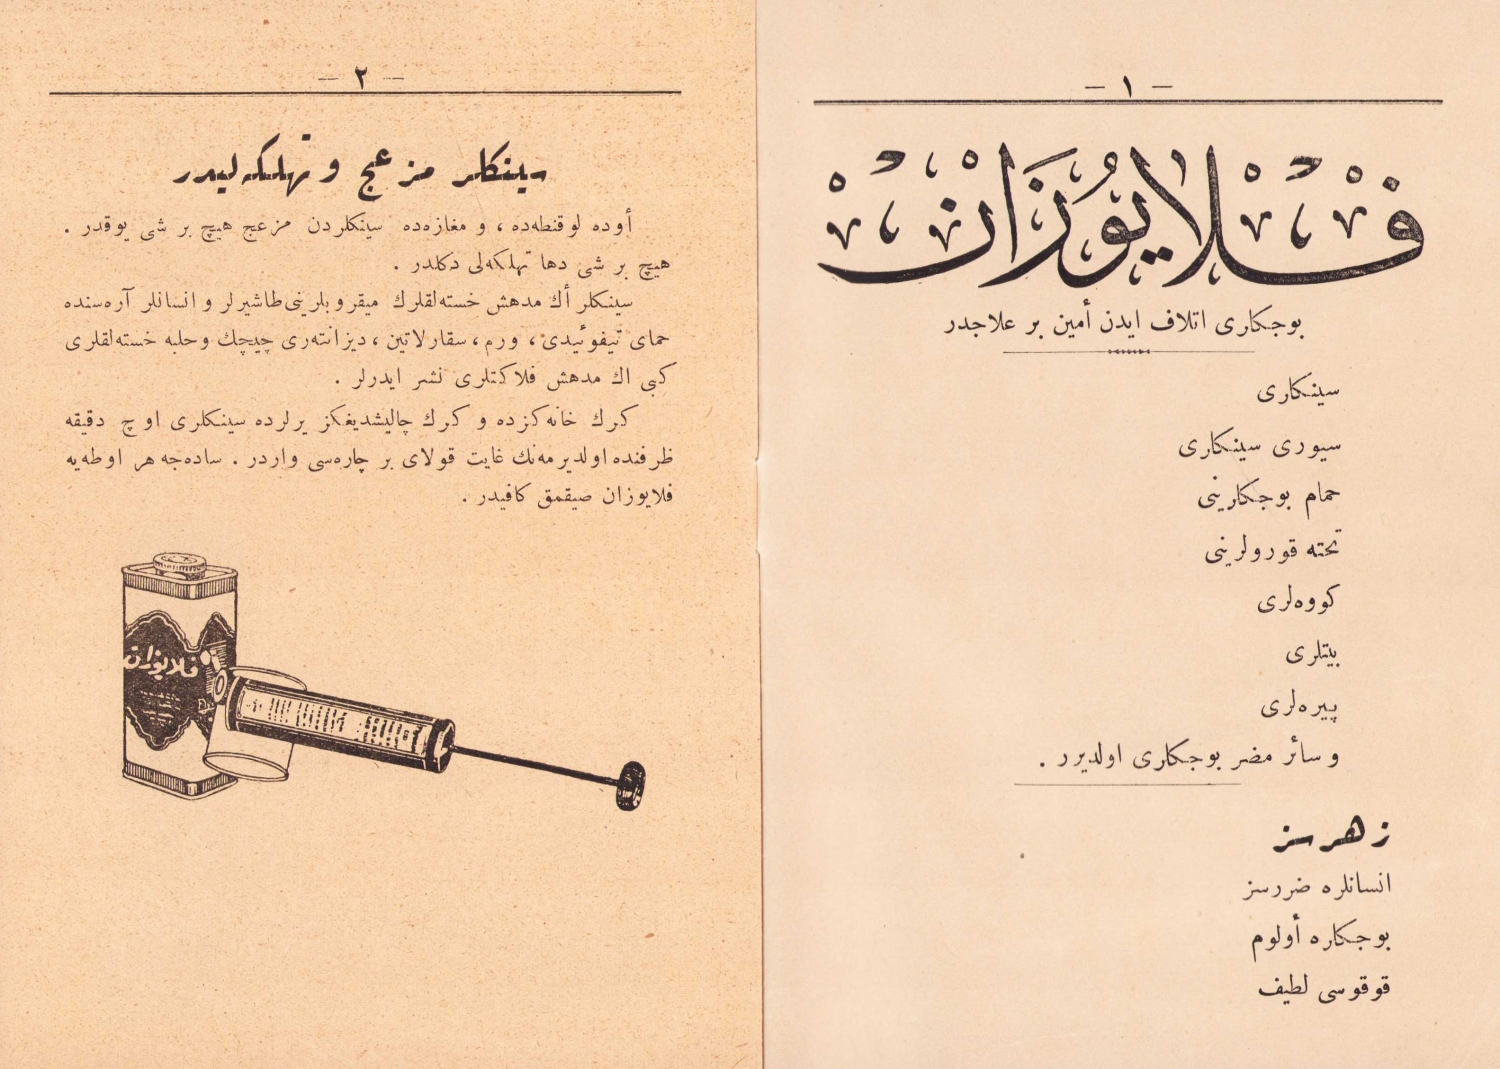 — ١ —
فلایوزان
بوجكلری اتلاف ایدن أمین بر علاجدر
سینكلری
سیوری سینكلری
حمام بوجكلرینی
تخته قورولرینی
كووه‌لری
بیتلری
پیره‌لری
و سائر مضر بوجكلری اولدیرر .
زهرسز
انسانلره ضررسز
بوجكلره أولوم
قوقوسی لطیف
— ٢ —
سینكلر مزعج و تهلكه‌لیدر
أوده لوقنطه‌ده ، و مغازه‌ده سینكلردن مزعج هیچ بر شی یوقدر .
هیچ بر شی دها تهلكه‌لی دكلدر .
سینكلر أك مدهش خسته‌لقلرك میقروبلرینی طاشیرلر و انسانلر آره‌سنده
حمای تیفوئیدی ، ورم ، سقارلاتین ، دیزانته‌ری چیچك وحلبه خسته‌لقلری
كبی اك مدهش فلاكتلری نشر ایدرلر .
كرك خانه‌كزده و كرك چالیشدیغكز یرلرده سینكلری اوچ دقیقه
ظرفنده اولدیرمه‌نك غایت قولای بر چاره‌سی واردر . ساده‌جه هر اوطه‌یه
فلایوزان صیقمق كافیدر .
فلایوزان